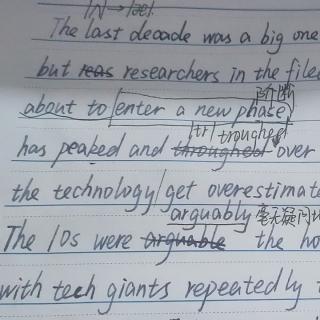 The last decade was a big one
but reas researchers in the filed
about to enter a new phase 阶段
has peaked and throughed troughed over
the technology get overestimate
arguably 毫无疑问地
The 10s were arguable the ho
with tech giants repeatedly